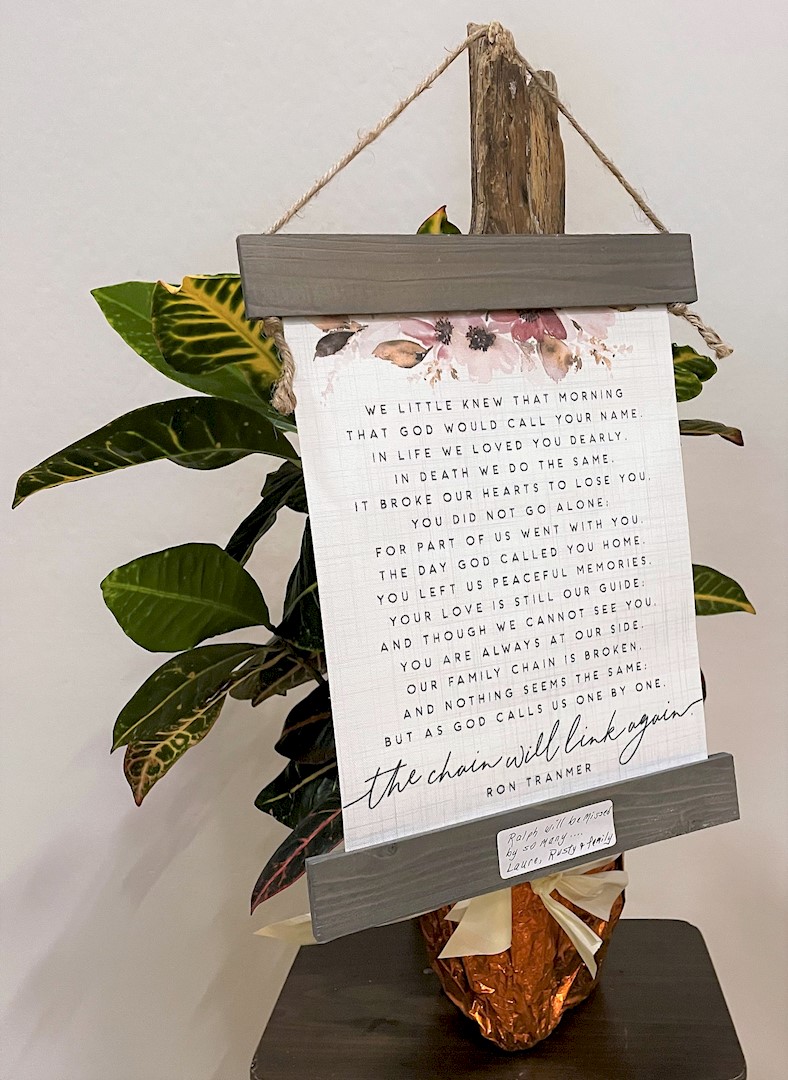 WE LITTLE KNEW THAT MORNING
THAT GOD WOULD CALL YOUR NAME.
IN LIFE WE LOVED YOU DEARLY,
IN DEATH WE DO THE SAME.
IT BROKE OUR HEARTS TO LOSE YOU,
YOU DID NOT GO ALONE;
FOR PART OF US WENT WITH YOU,
THE DAY GOD CALLED YOU HOME.
YOU LEFT US PEACEFUL MEMORIES,
YOUR LOVE IS STILL OUR GUIDE;
AND THOUGH WE CANNOT SEE YOU,
YOU ARE ALWAYS AT OUR SIDE.
OUR FAMILY CHAIN IS BROKEN,
AND NOTHING SEEMS THE SAME;
BUT AS GOD CALLS US ONE BY ONE,
the chain will link again.
RON TRANMER
Ralph will be missed
by so many....
Laure, Rusty & family